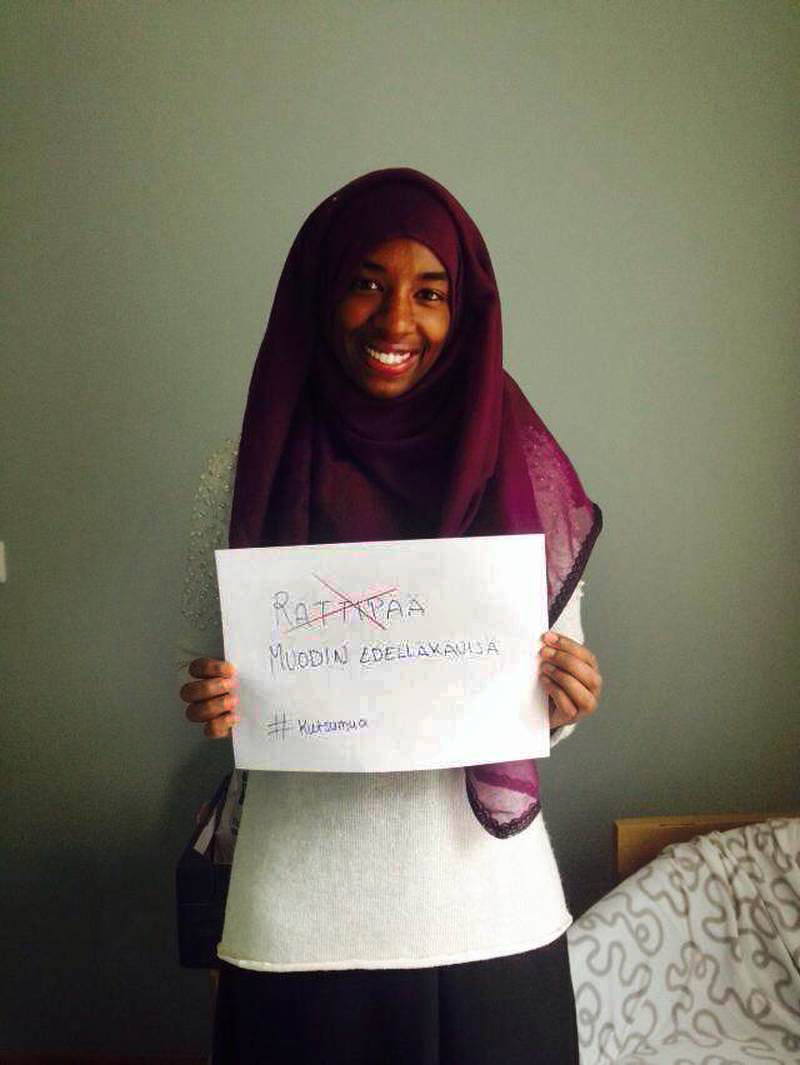 RATTIPÄÄ
MUODIN EDELLÄKÄVIJÄ
#kutsumua